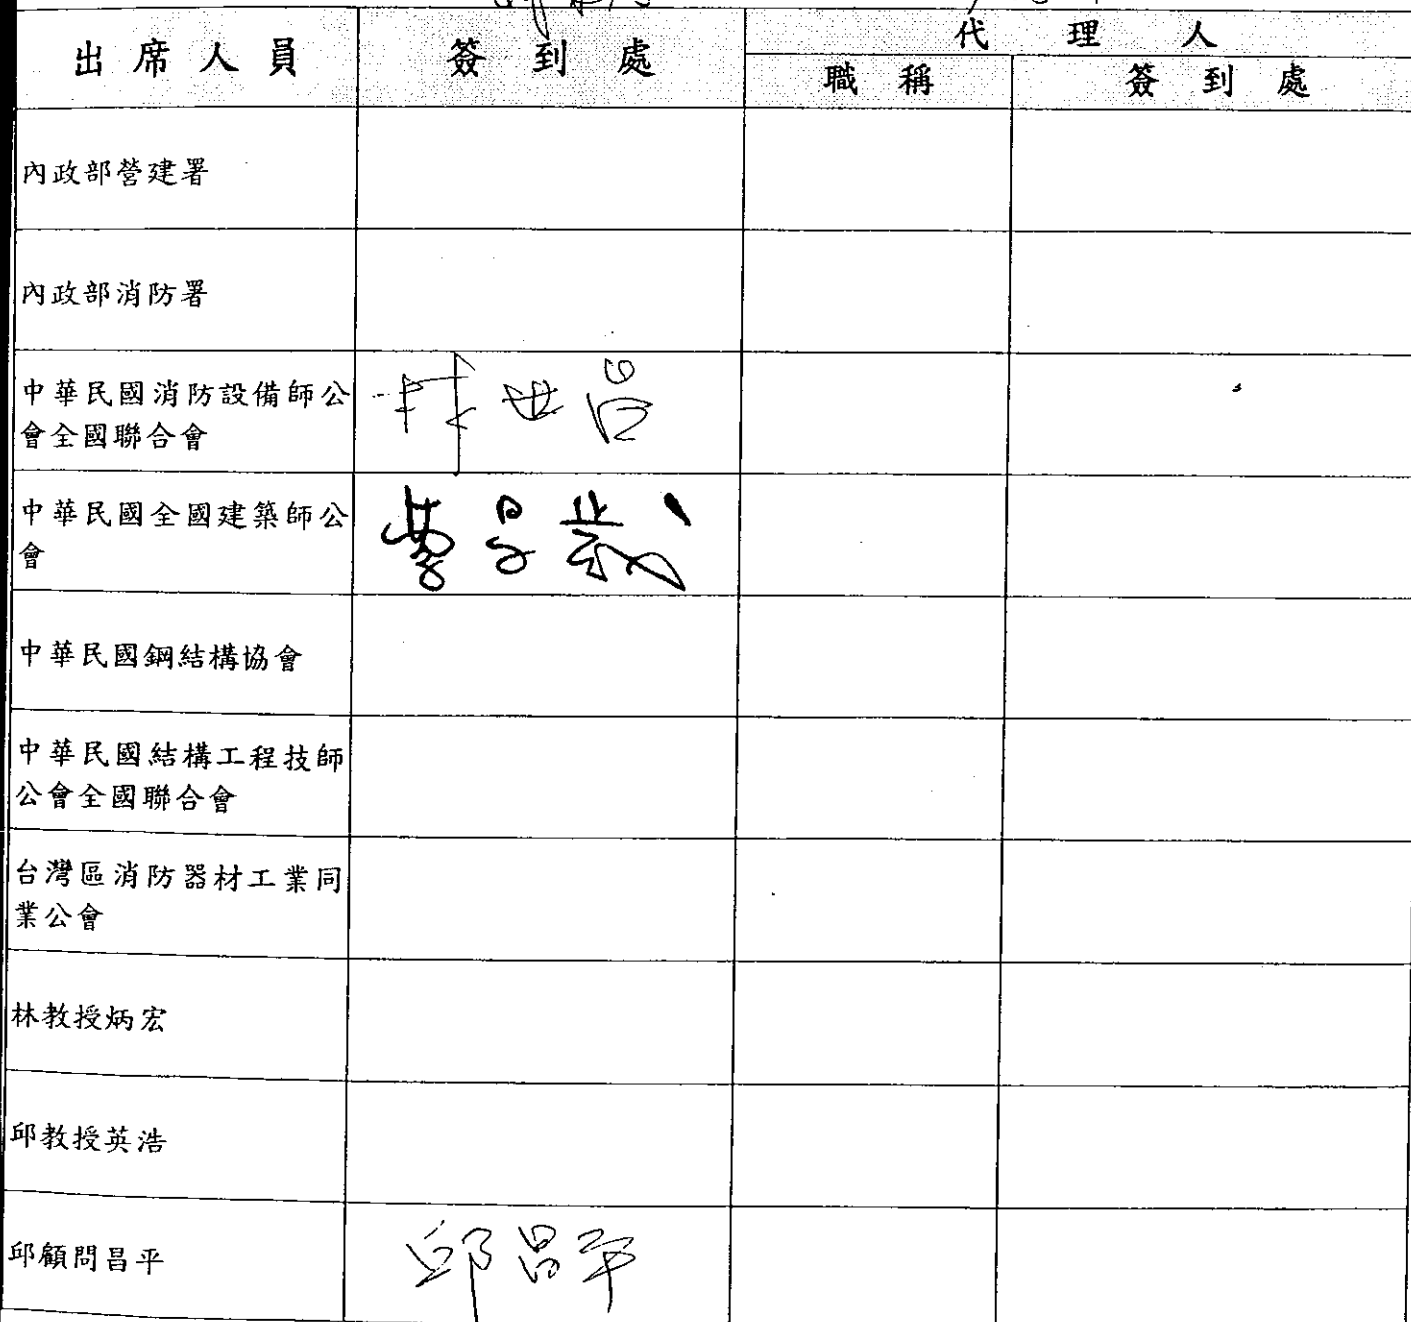 出席人員 簽到處 代理人
職稱 簽到處
內政部營建署
內政部消防署
中華民國消防設備師公
會全國聯合會
中華民國全國建築師公
會
中華民國鋼結構協會
中華民國結構工程技師
公會全國聯合會
台灣區消防器材工業同
業公會
林教授炳宏
邱教授英浩
邱顧問昌平 邱昌平